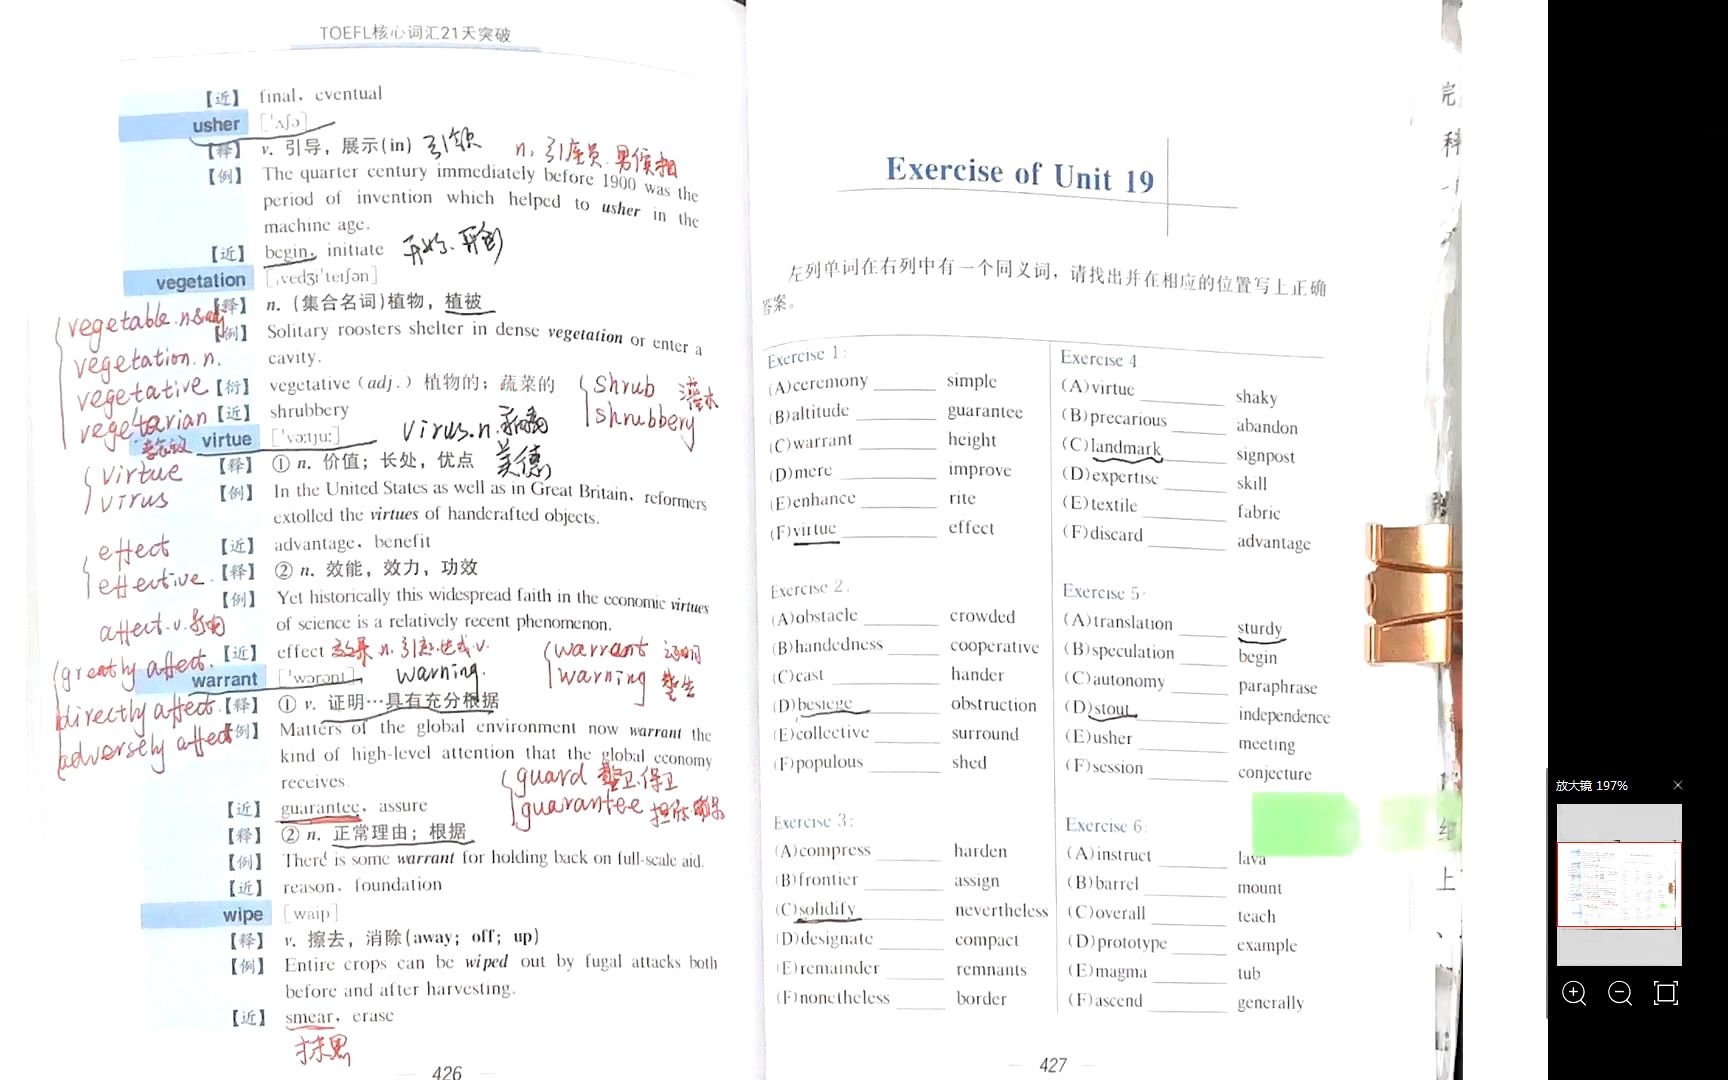 TOEFL核心词汇21天突破
【近】 final, eventual
usher ['ʌʃə]
【释】 v. 引导，展示(in) 引领 n. 引座员. 男傧相
【例】 The quarter century immediately before 1900 was the
period of invention which helped to usher in the
machine age.
【近】 begin, initiate 开始.
vegetation [ˌvedʒɪ'teɪʃən]
【释】 n. (集合名词)植物，植被
vegetable. n&adj
【例】 Solitary roosters shelter in dense vegetation or enter a
cavity.
vegetation. n.
【衍】 vegetative (adj.) 植物的；蔬菜的
vegetative
shrub 灌木
【近】 shrubbery
shrubbery
vegetarian
素食者
virtue ['vəːtjuː] virus. n. 病毒
【释】 ① n. 价值；长处，优点 美德
virtue
virus
【例】 In the United States as well as in Great Britain, reformers
extolled the virtues of handcrafted objects.
【近】 advantage, benefit
effect
【释】 ② n. 效能，效力，功效
effective.
【例】 Yet historically this widespread faith in the economic virtues
of science is a relatively recent phenomenon.
affect. v. 影响
【近】 effect 效果 n. 引起.造成 v.
warrant 证明
greatly affect.
warrant ['wɔrənt] warning.
warning 警告
【释】 ① v. 证明…具有充分根据
directly affect.
【例】 Matters of the global environment now warrant the
kind of high-level attention that the global economy
receives.
adversely affect
guard 警卫.保卫
【近】 guarantee, assure
guarantee 担保
【释】 ② n. 正常理由；根据
【例】 There is some warrant for holding back on full-scale aid.
【近】 reason, foundation
wipe [waip]
【释】 v. 擦去，消除(away; off; up)
【例】 Entire crops can be wiped out by fugal attacks both
before and after harvesting.
【近】 smear, erase
抹黑
426
Exercise of Unit 19
左列单词在右列中有一个同义词，请找出并在相应的位置写上正确
答案。
Exercise 1:
(A)ceremony ______ simple
(B)altitude ______ guarantee
(C)warrant ______ height
(D)mere ______ improve
(E)enhance ______ rite
(F)virtue ______ effect
Exercise 2.
(A)obstacle ______ crowded
(B)handedness ______ cooperative
(C)cast ______ hander
(D)besiege ______ obstruction
(E)collective ______ surround
(F)populous ______ shed
Exercise 3:
(A)compress ______ harden
(B)frontier ______ assign
(C)solidify ______ nevertheless
(D)designate ______ compact
(E)remainder ______ remnants
(F)nonetheless ______ border
Exercise 4
(A)virtue ______ shaky
(B)precarious ______ abandon
(C)landmark ______ signpost
(D)expertise ______ skill
(E)textile ______ fabric
(F)discard ______ advantage
Exercise 5:
(A)translation ______ sturdy
(B)speculation ______ begin
(C)autonomy ______ paraphrase
(D)stout ______ independence
(E)usher ______ meeting
(F)session ______ conjecture
Exercise 6:
(A)instruct ______ lava
(B)barrel ______ mount
(C)overall ______ teach
(D)prototype ______ example
(E)magma ______ tub
(F)ascend ______ generally
427
完
科
上
放大镜 197%